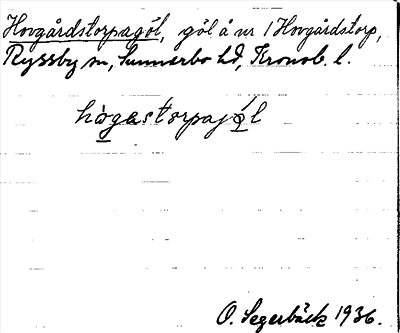 Hovgårdstorpagöl, göl å nr 1 Hovgårdstorp,
Ryssby sn, Sunnerbo hd, Kronob. l.
hògastorpajǿl
O. Segerbäck 1936.